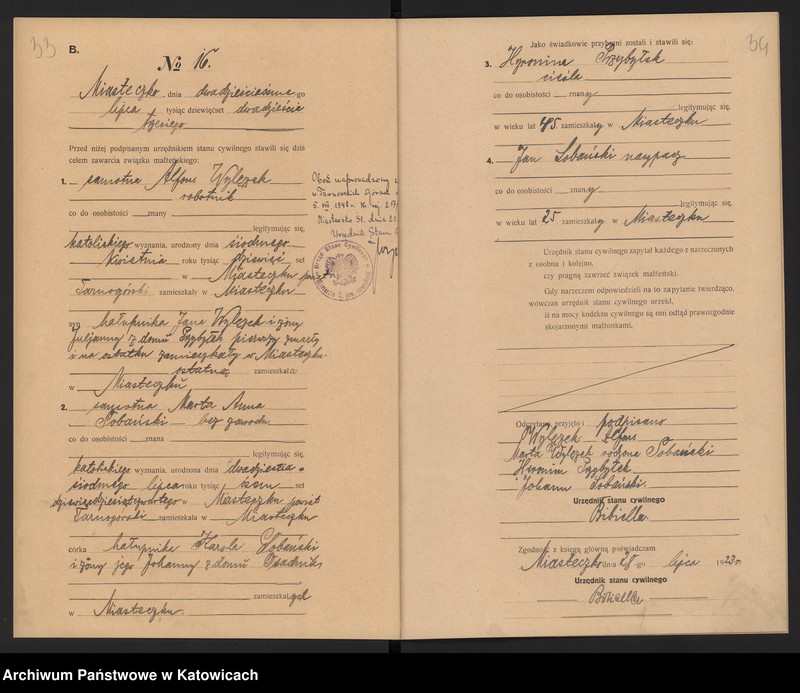 33
B.
№ 16.
Miasteczko, dnia dwudziestego ósmego
lipca tysiąc dziewięćset dwadzieście
trzeciego
Przed niżej podpisanym urzędnikiem stanu cywilnego stawili się dziś
celem zawarcia związku małżeńskiego:
1. samotna Alfons Wylęzek
robotnik
co do osobistości znany
legitymując się,
katolickiego wyznania, urodzony dnia siódmego
kwietnia roku tysiąc dziewięć set
w Miasteczku
Tarnogórski zamieszkały w Miasteczku
syn hałupnika Jana Wylęzek i żony
Juljanny z domu Przybyłek pierwszy zmarły
i na ostatku zamieszkały w Miasteczku
ostatnia zamieszkała
w Miasteczku
2. samotna Marta Anna
Sobański bez zawodu
co do osobistości znana
legitymując się,
katolskiego wyznania, urodzona dnia dwudziestia-
siodmego lipca roku tysiąc set
w Miasteczku powiat
Tarnogórski zamieszkała w Miasteczku
córka hałupnika Karola Sobański
i żony jego Johanny z domu
zamieszkal
w Miasteczku.
Urząd Stanu Cywilnego
34
Jako świadkowie przybrani zostali i stawili się:
3. Hyronima Przybyłek
cieśla
co do osobistości znany
legitymując się,
w wieku lat 45 zamieszkały w Miasteczku
4. Jan Sobański
co do osobistości znany
legitymując się,
w wieku lat 25 zamieszkały w Miasteczku
Urzędnik stanu cywilnego zapytał każdego z narzeczonych
z osobna i kolejno,
czy pragną zawrzeć związek małżeński.
Gdy narzeczeni odpowiedzieli na to zapytanie twierdząco,
wówczas urzędnik stanu cywilnego orzekł,
iż na mocy kodeksu cywilnego są oni odtąd prawozgodnie
skojarzonymi małżonkami.
Odczytano, przyjęto i podpisano
Wylęzek Alfons
Marta Wylęzek rodzona Sobański
Hyronim Przybyłek
Johann Sobański.
Urzędnik stanu cywilnego
Bibiella.
Zgodność z księgą główną poświadczam
Miasteczko dnia 28 go lipca 1923 r.
Urzędnik stanu cywilnego
Bibiella
Archiwum Państwowe w Katowicach